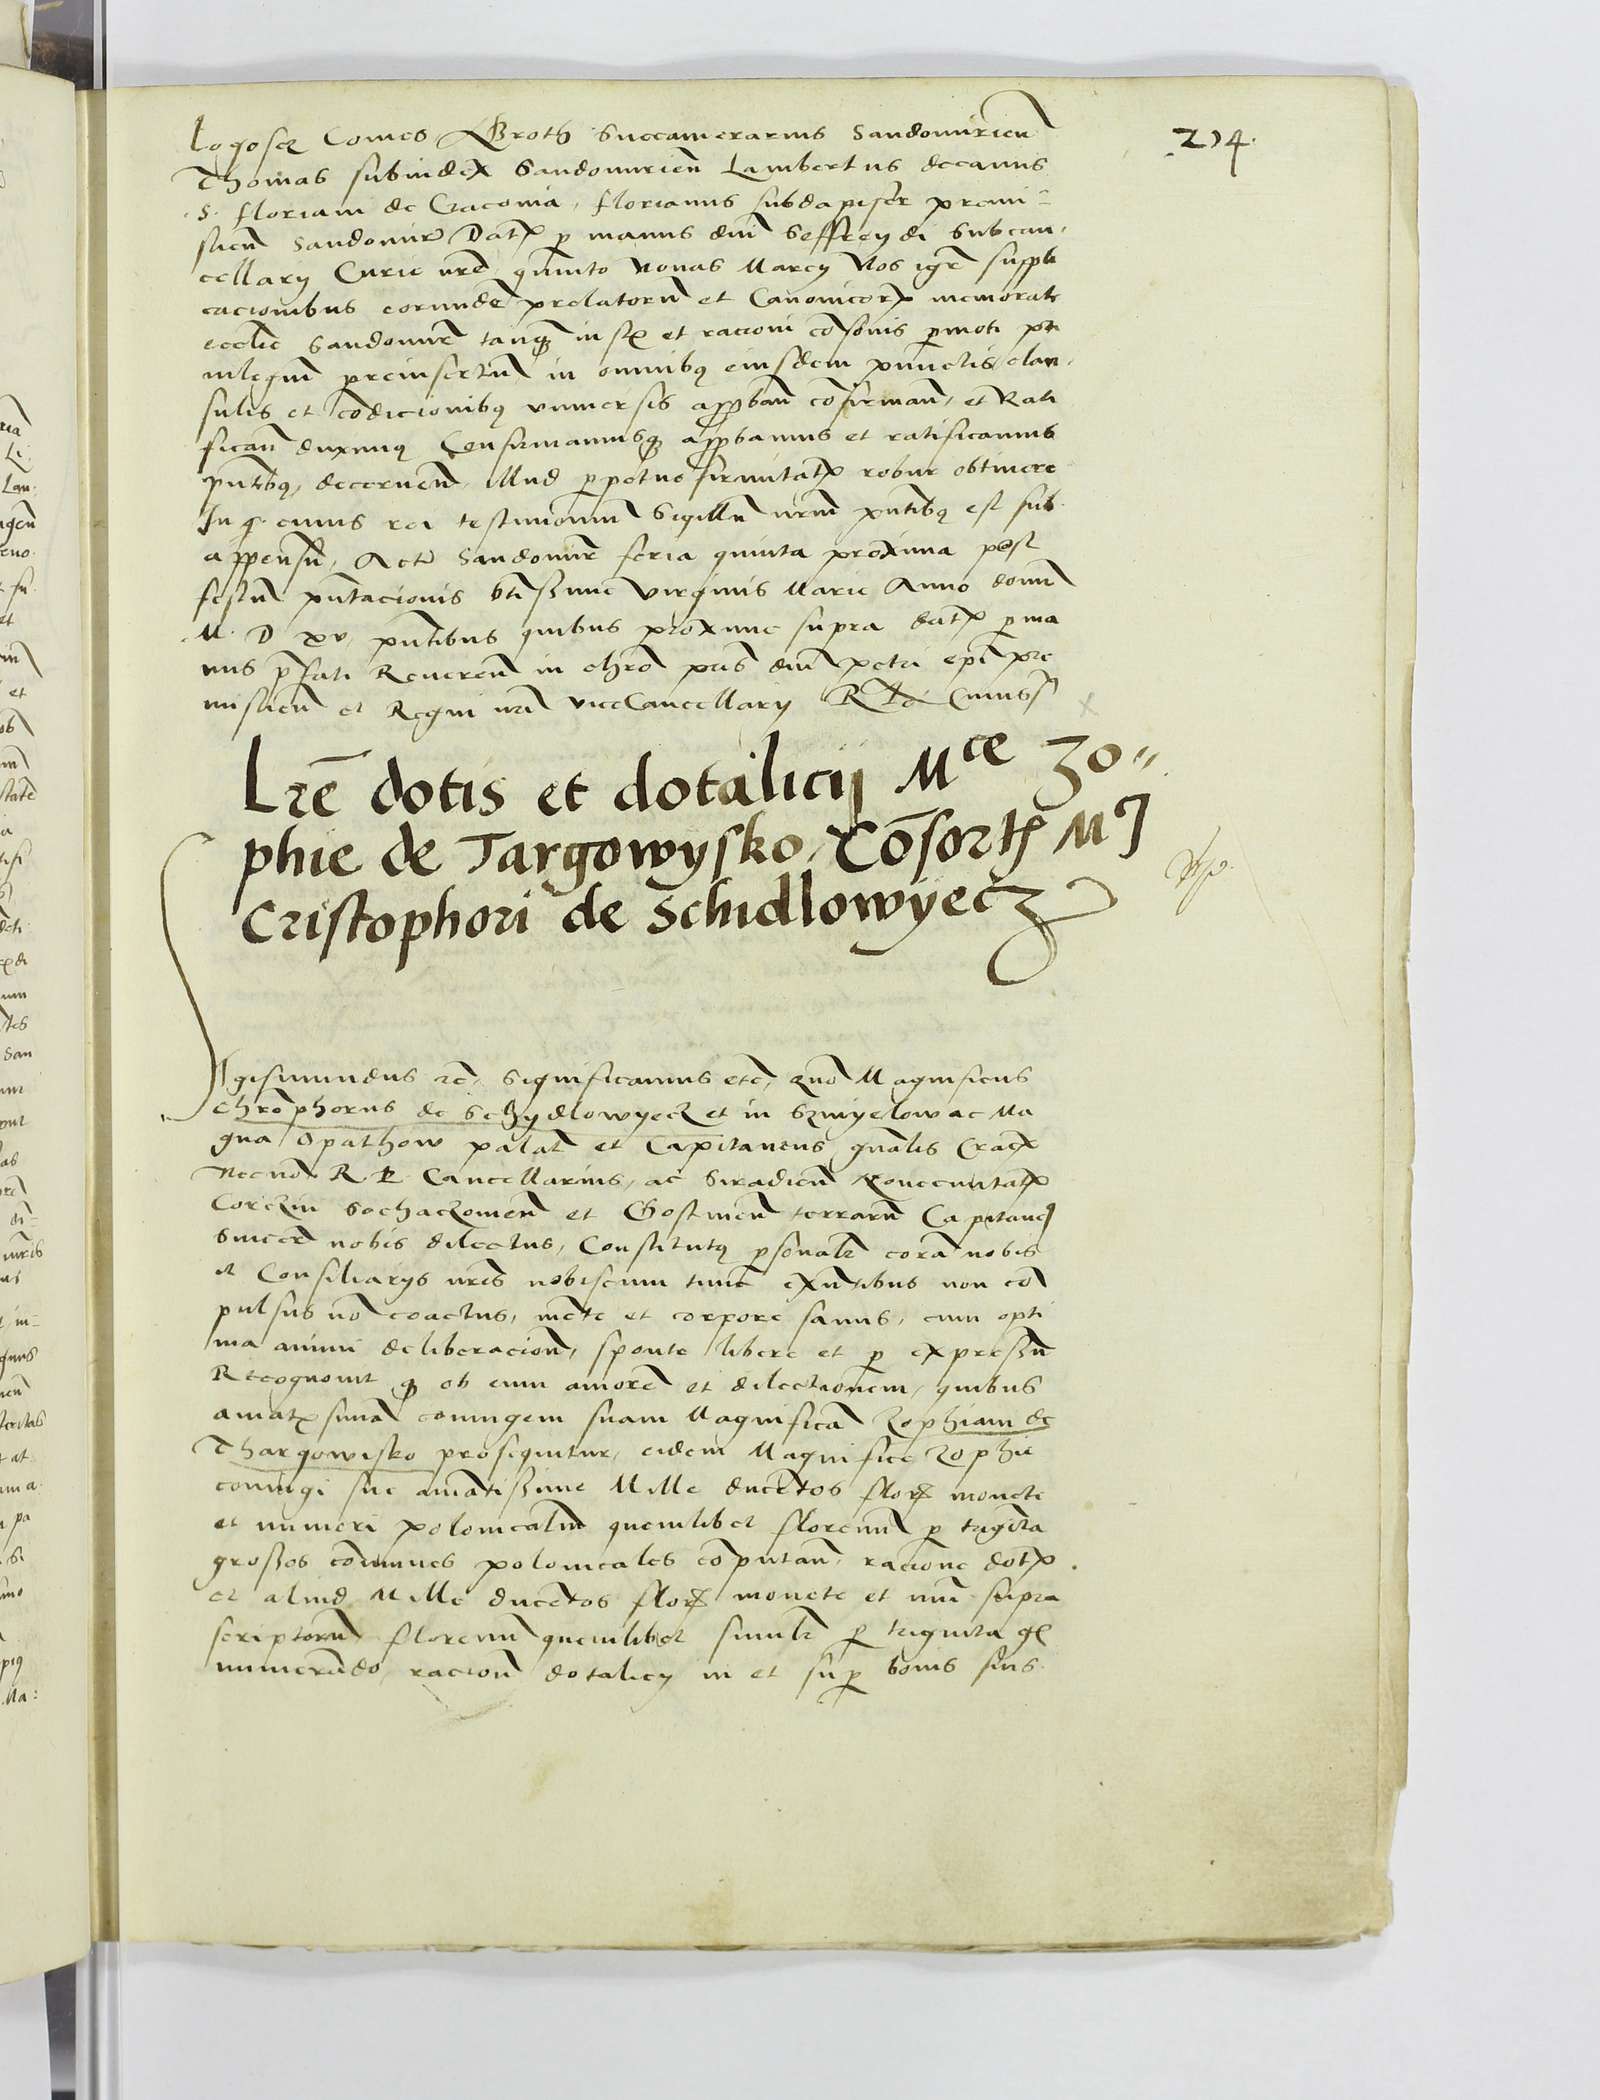 214.
Logosch Comes Broth Succamerarius Sandomirien̄
Thomas subiudex Sandomirien̄ Lambertus decanus
S. Floriani de Cracovia, Florianus subdapifer premi=
slien̄ Sandomir̄ Dat̄ p manus dni Seffreydi Subcan,
cellarij Curie nr̄e quinto Nonas Marcij Nos igr̄ suppli
cacionibus eorundē prelatorū et Canonicor̄ memorate
ecclie Sandomir̄ tanq̄ iustis et racioni cōsonis p̄moti pri
uilegiū preinsertum in omnibꝫ eiusdem punctis clau,
sulis et cōdicionibꝫ vniuersis approban̄ cōfirman̄, et Rati
fican̄ duximꝫ Confirmamusqꝫ approbamus et ratificamus
pn̄tibꝫ, decernen̄, illud p̄petuo firmitatis robur obtinere
In qꝫ cuius rei testimonium Sigillū nrm̄ pn̄tibꝫ est sub
appensū, Actū Sandomir̄ feria quinta proxima post
festū pn̄tacionis btissime virginis Marie Anno domī
M. D xv, pn̄tibus quibus proxime supra dat̄ p ma
nus p̄fati Reueren̄ in chrō pris dni petri epi pre
mislien̄ et Regni nr̄i viceCancellarij
Lr̄e dotis et dotalicij Mce Zo"
phie de Targowysko, Cōsortꝭ MJ
Cristophori de Schidlowyecz
Igismundus rc̄, Significamus etc̄, quō Magnificus
chrōphorus de Schydlowyecz et in Szmyelow ac Ma
gna Opathow palat̄ et Capitaneus gnālis Crac̄
Necnō R P Cancellarius, ac Siradien̄ Nouecivitatꝭ
Corczin Sochaczowien̄ et Gostinien̄ terrarū Capitaneꝫ
Sincer̄ nobis dilectus, Constitutꝫ p̄sonalr̄ corā nobis
et Consiliarijs nr̄is nobiscum tunc exn̄tibus non cō
pulsus nō coactus, mēte et corpore sanus, cum opti
ma animi deliberacion̄, sponte libere et p expressū
Recognouit qꝫ ob eum amorē et dilectionem, quibus
amatꝭsimā coniugem suam Magnificā Zophiam de
Thargowisko prosequitur, eidem Magnifice Zophie
coniugi sue amātissime Mille ducētos flor̄ monete
et numeri polonicalim̄ quemlibet florenū p trigīta
grossos cōmunes polonicales cōputan̄, racione dotꝭ
et aliud Mille ducētos flor̄ monete et nūi supra
scriptorū, florenū quemlibet similr̄ p triginta gꝭ
numerādo, racion̄ dotalicij in et sup̄ bonis suis